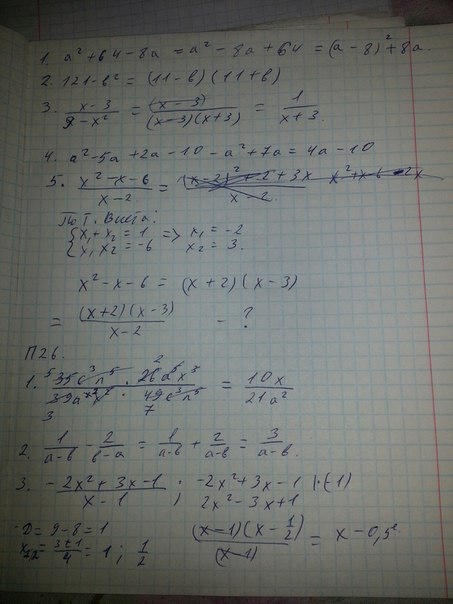 1. a² + 64 - 8a = a² - 8a + 64 = (a - 8)² + 8a.
2. 121 - b² = (11 - b)(11 + b)
3. (x - 3)/(9 - x²) = (x - 3)/((x - 3)(x + 3)) = 1/(x + 3).
4. a² - 5a + 2a - 10 - a² + 7a = 4a - 10
5. (x² - x - 6)/(x - 2) =
По Т. Виета:
{x₁ + x₂ = 1 => x₁ = -2
{x₁ x₂ = -6 x₂ = 3.
x² - x - 6 = (x + 2)(x - 3)
= ((x + 2)(x - 3))/(x - 2) - ?
П26.
1. = 10x/21a²
2. 1/(a - b) - 2/(b - a) = 1/(a - b) + 2/(a - b) = 3/(a - b).
3. - (2x² + 3x - 1)/(x - 1) ; -2x² + 3x - 1 |·(-1)
2x² - 3x + 1
D = 9 - 8 = 1
x₁,₂ = (3 ± 1)/4 = 1 ; 1/2
((x - 1)(x - 1/2))/(x - 1) = x - 0,5